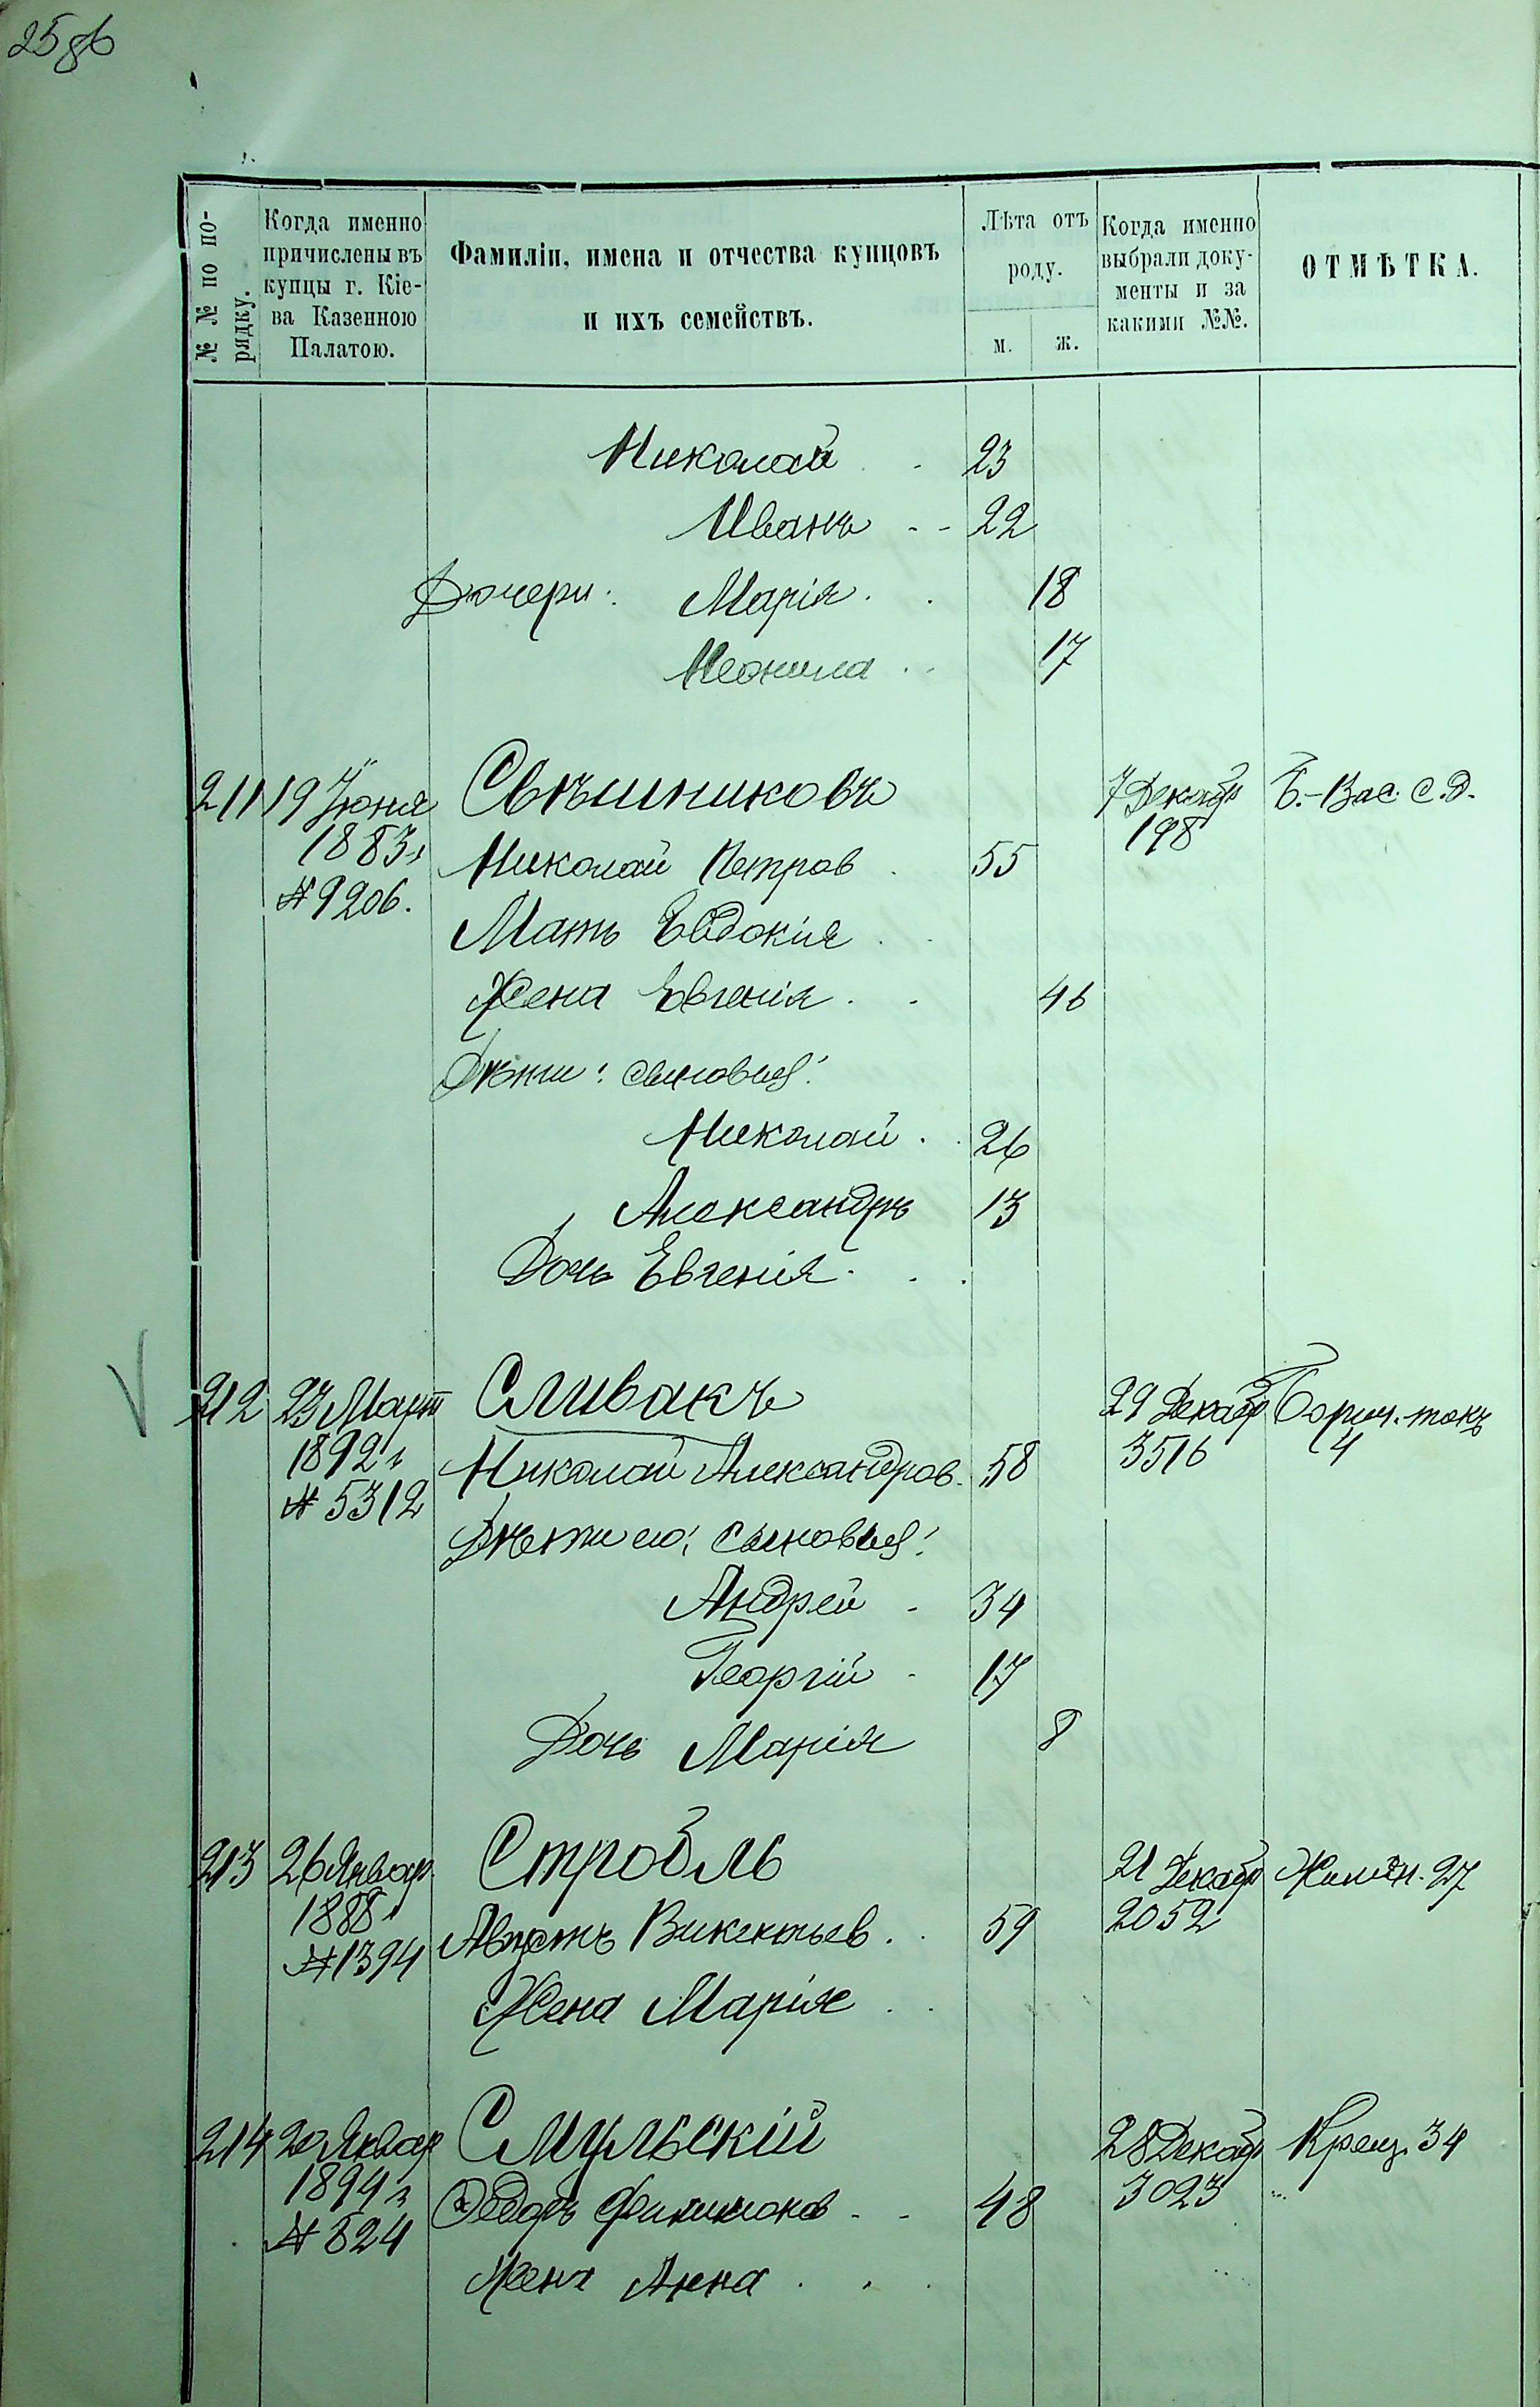 25 об
№ № по по-
рядку.
Когда именно
причислены въ
купцы г. Кіе-
ва Казенною
Палатою.
Фамиліи, имена и отчества купцовъ
и ихъ семействъ.
Лѣта отъ
роду.
м. ж.
Когда именно
выбрали доку-
менты и за
какими №№.
ОТМѢТКА.
Николай . . 23
Иванъ - - 22
Дочери: Марія . . 18
Неонила . . 17
211 19 Іюня Свѣшниковъ 7 Декабр Б.-Вас. с.д.
1883 г 198
Николай Петров . 55
№ 9206.
Мать Евдокія . .
Жена Евгенія . . 46
Дѣти: сыновья:
Николай . . 26
Александръ 13
Дочь Евгенія . . .
212 23 Март Сливакъ 29 Декабр Борич. токъ
1892 г 3516 4
Николай Александров. 58
№ 5312
Дѣти его: сыновья:
Андрей - 34
Георгій - 17
Дочь Марія 8
213 26 Январ Стробль 21 Декабр Жилян. 27
1888 г 2052
Августъ Викентьев . . 59
№ 1394
Жена Марія . .
214 20 Январ Смульскій 28 Декабр Крещ. 34
1894 г 3023 "
Ѳедоръ Филимонов - - 48
№ 824
Жена Анна . . .